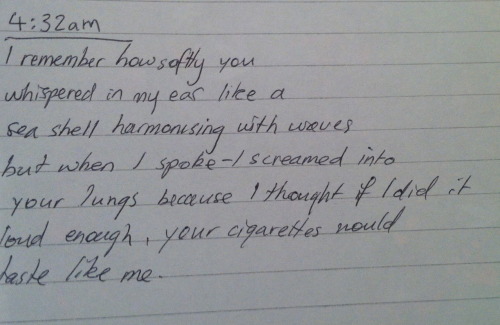 4:32am
I remember how softly you
whispered in my ear like a
sea shell harmonising with waves
but when I spoke-I screamed into
your lungs because I thought if I did it
loud enough, your cigarettes would
taste like me.